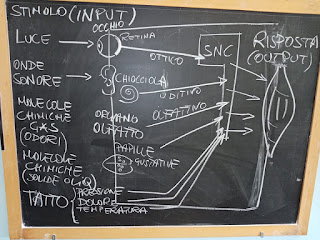 STIMOLO (INPUT)
OCCHIO
LUCE
RETINA
OTTICO
SNC
RISPOSTA
(OUTPUT)
ONDE
SONORE
CHIOCCIOLA
UDITIVO
MOLECOLE
CHIMICHE
GAS
(ODORI)
ORGANO
OLFATTO
OLFATTIVO
MOLECOLE
CHIMICHE
PAPILLE
GUSTATIVE
TATTO
PRESSIONE
DOLORE
TEMPERATURA